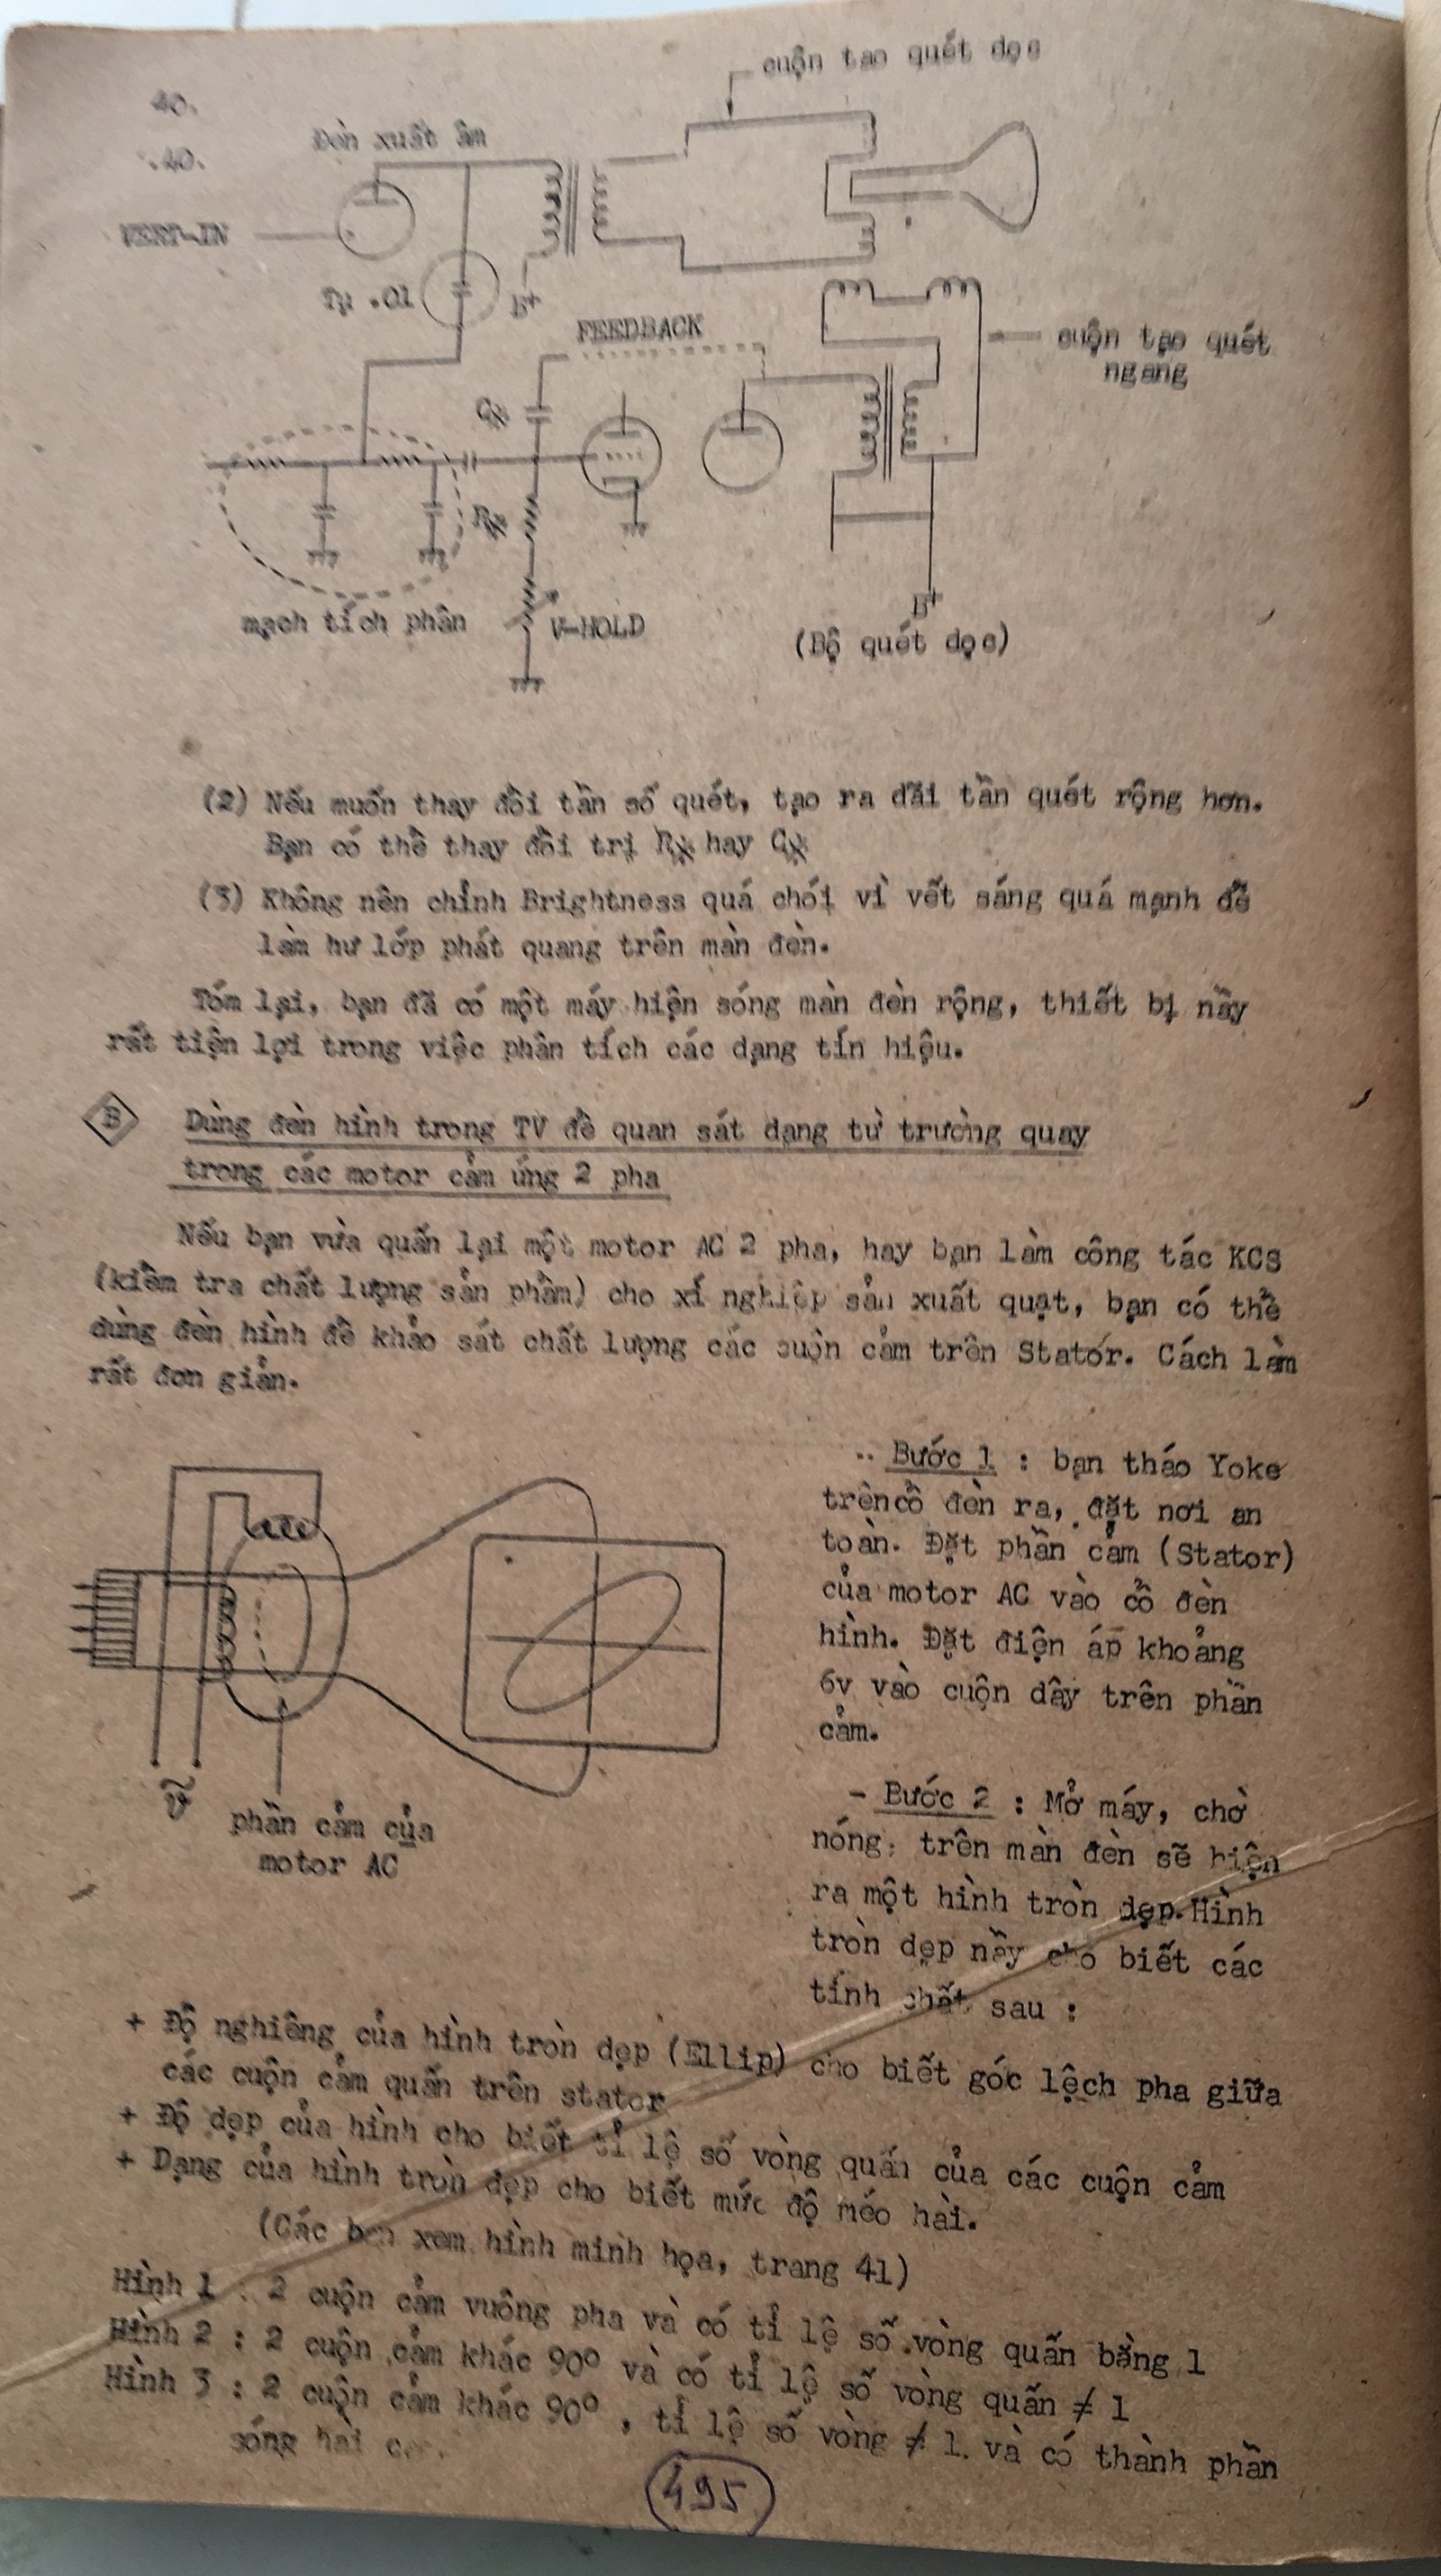 cuộn tạo quét dọc
40.
.40.
Đèn xuất âm
VERT-IN
Tụ .01
B+
FEEDBACK
cuộn tạo quét
ngang
Cx
Rx
mạch tích phân
V-HOLD
B+
(Bộ quét dọc)
(2) Nếu muốn thay đổi tần số quét, tạo ra dãi tần quét rộng hơn.
Bạn có thể thay đổi trị Rx hay Cx
(3) Không nên chỉnh Brightness quá chói vì vết sáng quá mạnh dễ
làm hư lớp phát quang trên màn đèn.
Tóm lại, bạn đã có một máy hiện sóng màn đèn rộng, thiết bị nầy
rất tiện lợi trong việc phân tích các dạng tín hiệu.
B Dùng đèn hình trong TV để quan sát dạng từ trường quay
trong các motor cảm ứng 2 pha
Nếu bạn vừa quấn lại một motor AC 2 pha, hay bạn làm công tác KCS
(kiểm tra chất lượng sản phẩm) cho xí nghiệp sản xuất quạt, bạn có thể
dùng đèn hình để khảo sát chất lượng các cuộn cảm trên Stator. Cách làm
rất đơn giản.
- Bước 1 : bạn tháo Yoke
trên cổ đèn ra, đặt nơi an
toàn. Đặt phần cảm (Stator)
của motor AC vào cổ đèn
hình. Đặt điện áp khoảng
6v vào cuộn dây trên phần
cảm.
phần cảm của
motor AC
- Bước 2 : Mở máy, chờ
nóng, trên màn đèn sẽ hiện
ra một hình tròn dẹp. Hình
tròn dẹp nầy cho biết các
tính chất sau :
+ Độ nghiêng của hình tròn dẹp (Ellip) cho biết góc lệch pha giữa
các cuộn cảm quấn trên stator
+ Độ dẹp của hình cho biết tỉ lệ số vòng quấn của các cuộn cảm
+ Dạng của hình tròn dẹp cho biết mức độ méo hài.
(Các bạn xem hình minh họa, trang 41)
Hình 1 : 2 cuộn cảm vuông pha và có tỉ lệ số vòng quấn bằng 1
Hình 2 : 2 cuộn cảm khác 90º và có tỉ lệ số vòng quấn ≠ 1
Hình 3 : 2 cuộn cảm khác 90º, tỉ lệ số vòng ≠ 1. và có thành phần
sóng hài
495